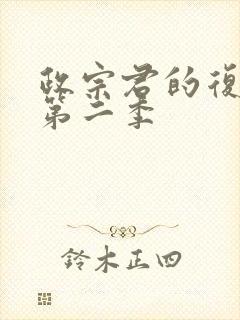 政宗君的復
第二季
鈴木正四